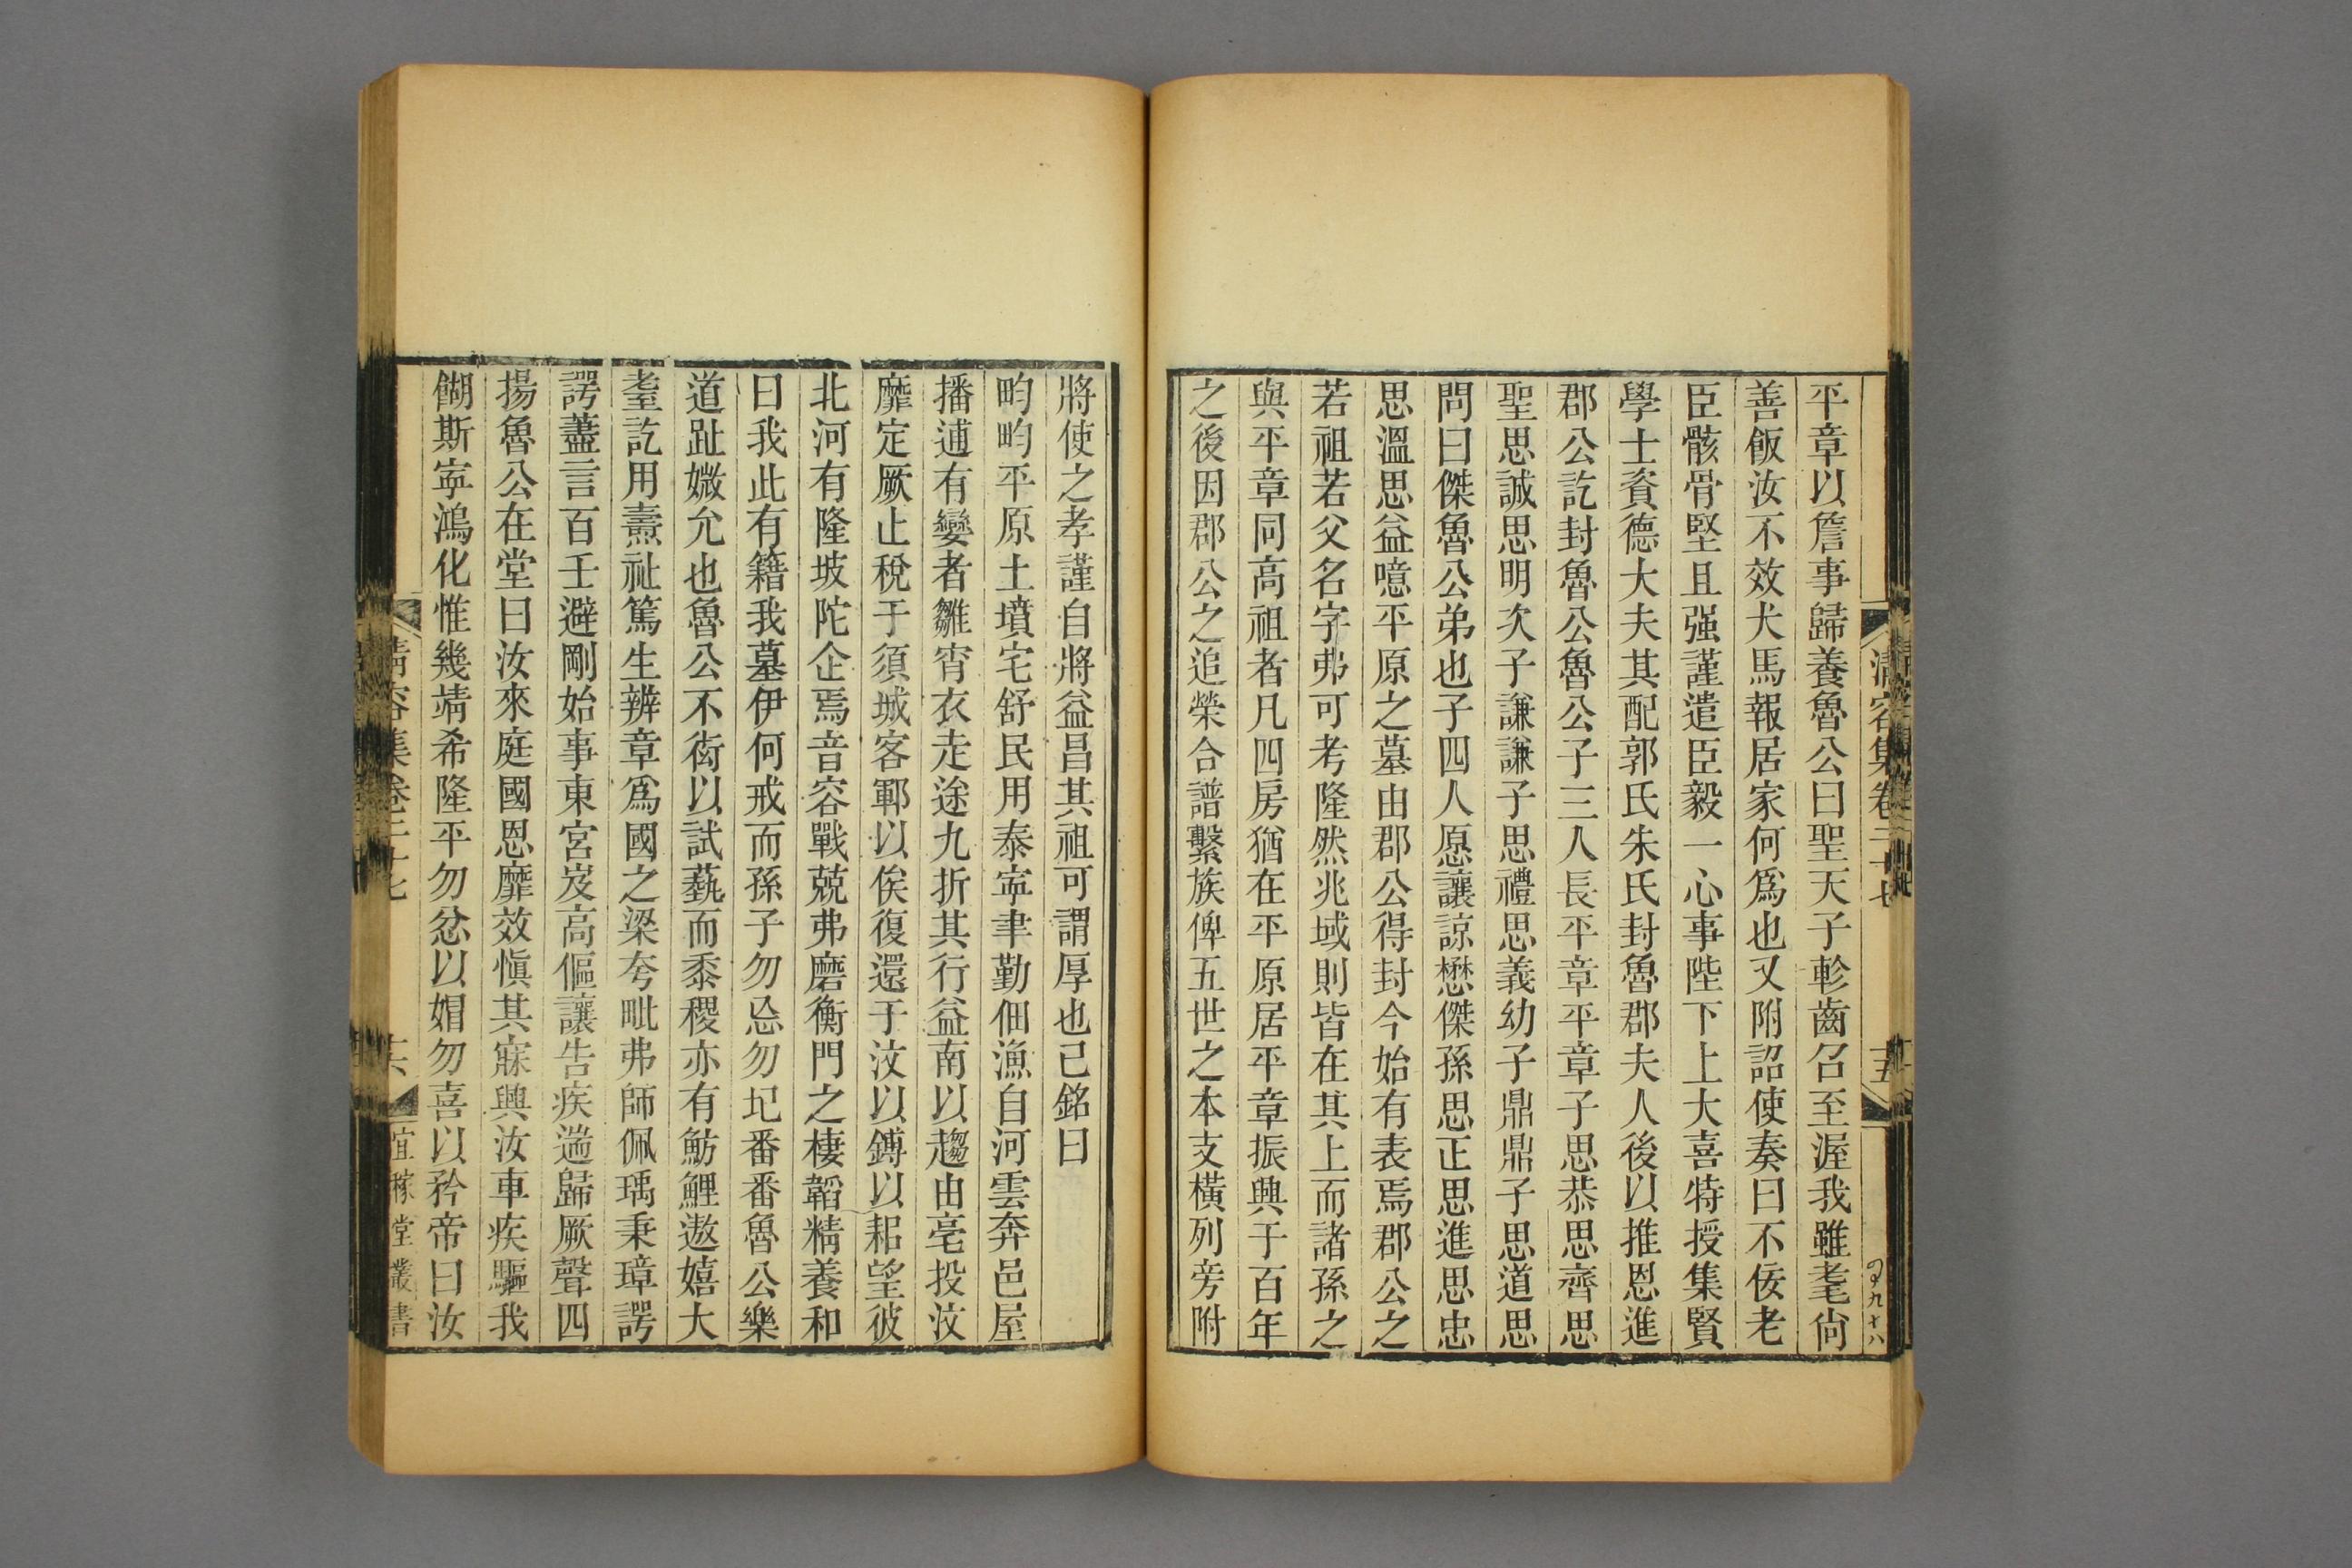 清容集卷二十七
十五
平章以詹事歸養魯公曰聖天子軫齒召至渥我雖耄尙
善飯汝不效犬馬報居家何爲也又附詔使奏曰不佞老
臣骸骨堅且强謹遣臣毅一心事陛下上大喜特授集賢
學士資德大夫其配郭氏朱氏封魯郡夫人後以推恩進
郡公訖封魯公魯公子三人長平章平章子思恭思齊思
聖思誠思明次子謙謙子思禮思義幼子鼎鼎子思道思
問曰傑魯公弟也子四人愿讓諒懋傑孫思正思進思忠
思溫思益噫平原之墓由郡公得封今始有表焉郡公之
若祖若父名字弗可考隆然兆域則皆在其上而諸孫之
與平章同高祖者凡四房猶在平原居平章振興于百年
之後因郡公之追榮合譜繫族俾五世之本支橫列旁附
將使之孝謹自將益昌其祖可謂厚也已銘曰
畇畇平原土墳宅舒民用泰寍聿勤佃漁自河雲奔邑屋
播逋有孌者雛宵衣走途九折其行益南以趨由亳投汶
靡定厥止稅于須城客鄆以俟復還于汶以鎛以耜望彼
北河有隆坡陀企焉音容戰兢弗磨衡門之棲韜精養和
曰我此有籍我墓伊何戒而孫子勿忘勿圮番番魯公樂
道趾媺允也魯公不衒以試蓺而黍稷亦有魴鯉遨嬉大
耋訖用燾祉篤生辨章爲國之梁夸毗弗師佩瑀秉璋諤
諤藎言百壬避剛始事東宮岌高傴讓告疾遄歸厥聲四
揚魯公在堂曰汝來庭國恩靡效愼其寐興汝車疾驅我
餬斯寍鴻化惟幾靖希隆平勿忿以娼勿喜以矜帝曰汝
清容集卷二十七
十六
宜稼堂叢書